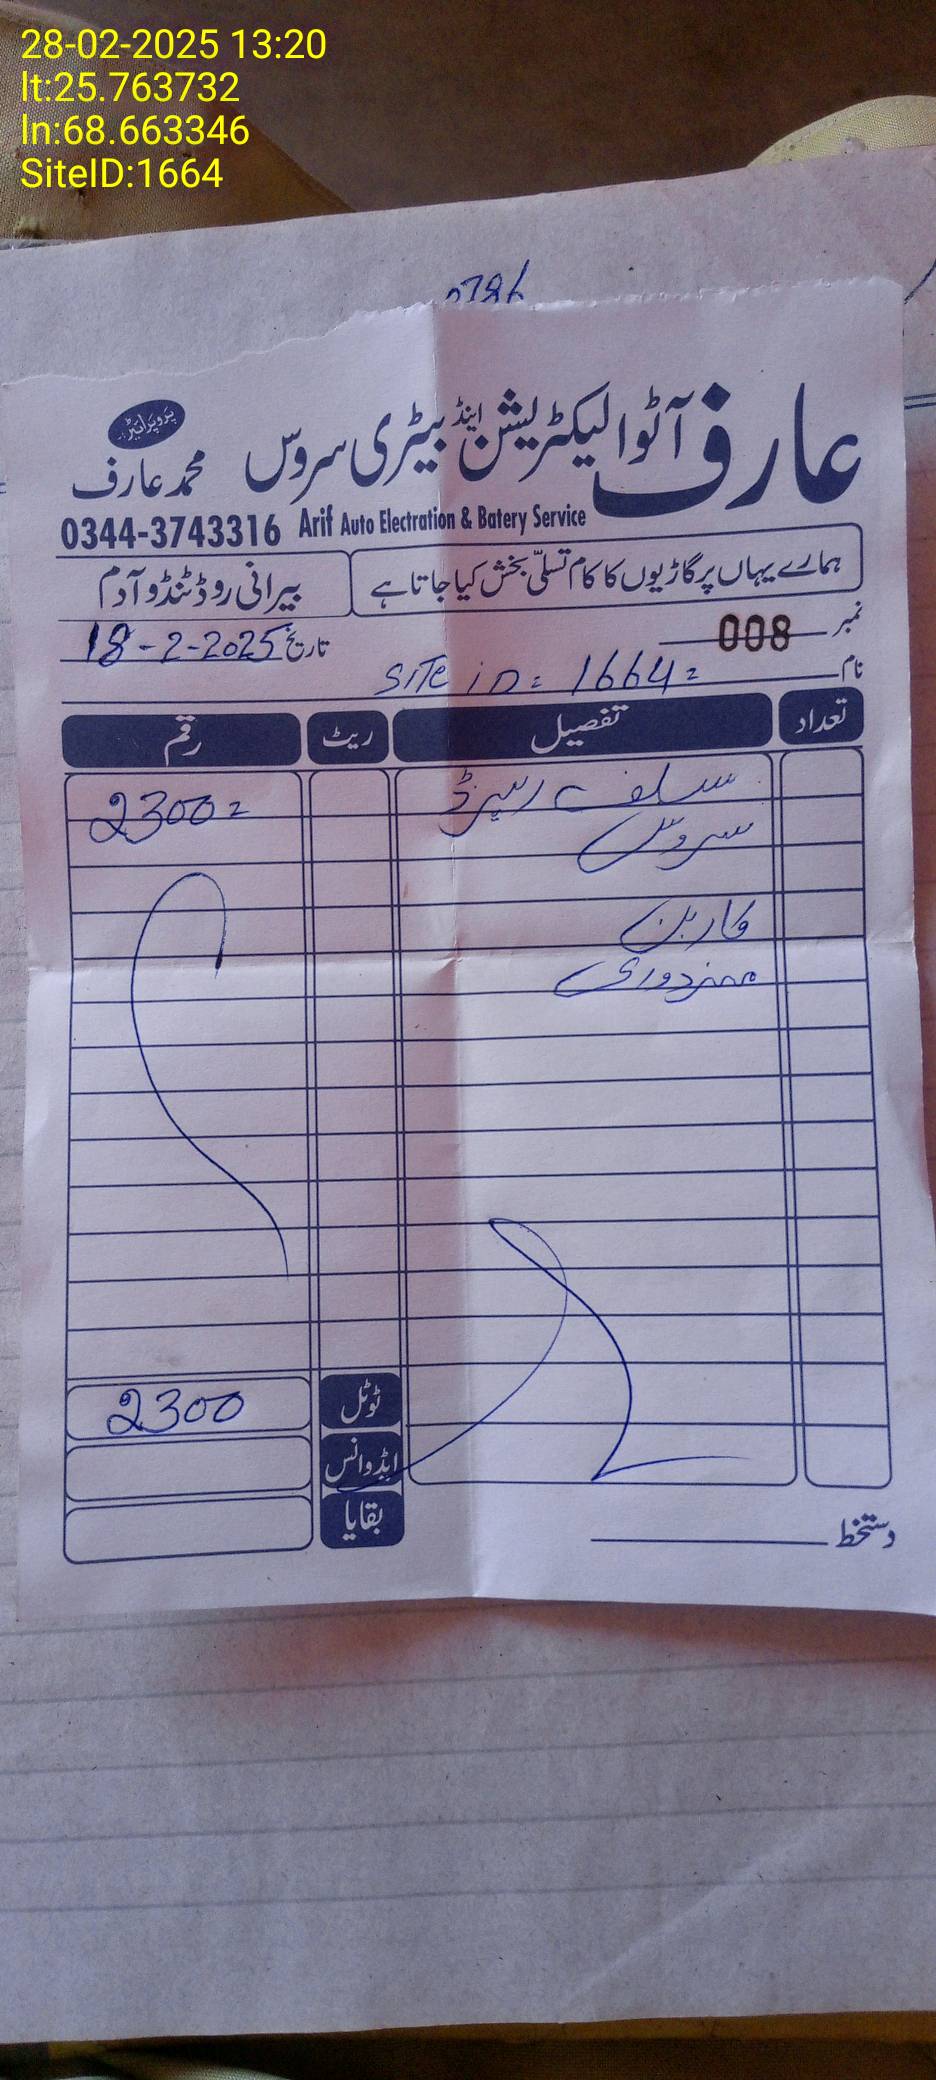 28-02-2025 13:20
lt:25.763732
ln:68.663346
SiteID:1664
عارف آٹو الیکٹریشن اینڈ بیٹری سروس
پروپرائیٹر
محمد عارف
0344-3743316
Arif Auto Electration & Batery Service
ہمارے یہاں پر گاڑیوں کا کام تسلّی بخش کیا جاتا ہے
بیرانی روڈ ٹنڈو آدم
نمبر 008
تاریخ 18-2-2025
نام SiTe iD: 1664=
تعداد تفصیل ریٹ رقم
سلف رپیرڈ 2300=
سروس
کاربن
مزدوری
ٹوٹل 2300
ایڈوانس
بقایا
دستخط